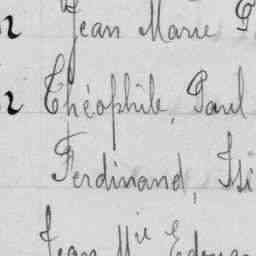 Jean Marie P
Théophile, Paul
Ferdinand, Isi
Jean Mie Edoua